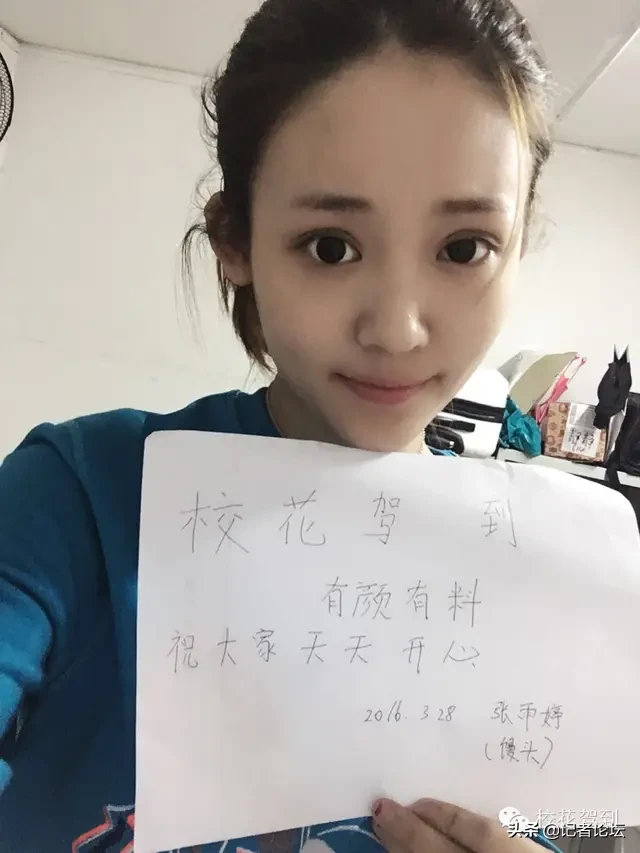 校花驾到
有颜有料
祝大家天天开心
2016.3.28 张币婷
(馒头)
校花驾到
头条 @记者论坛